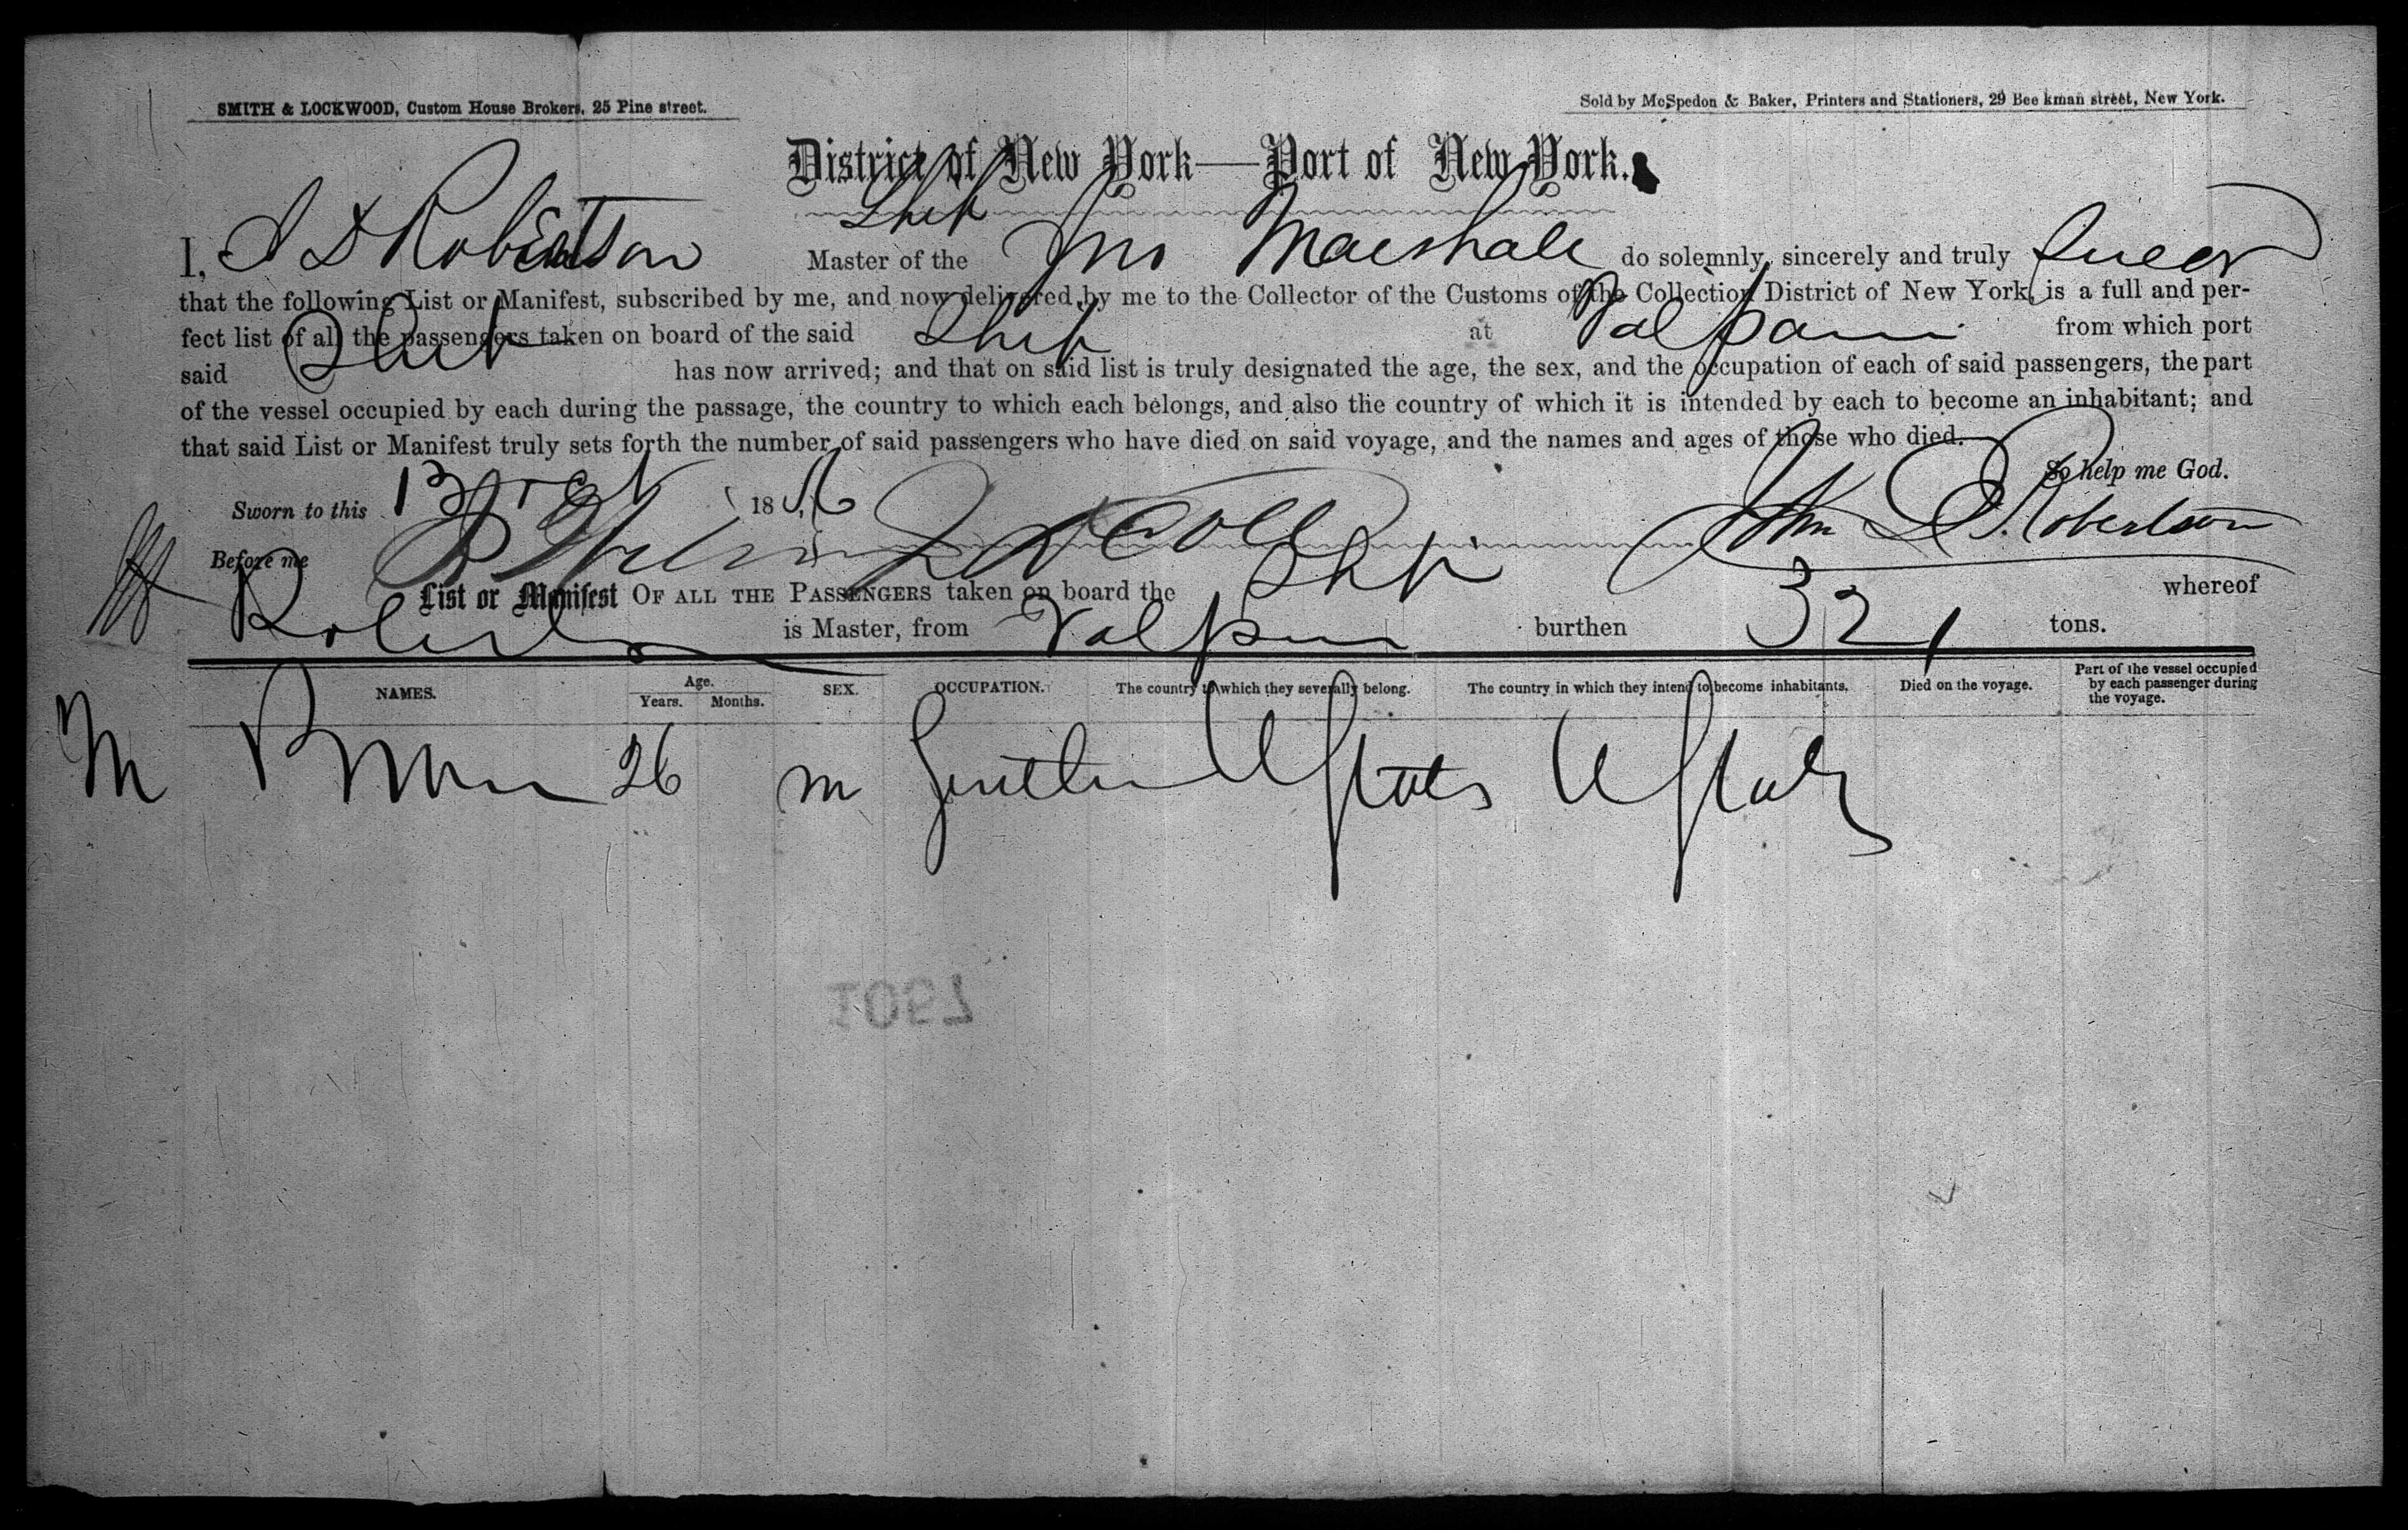 SMITH & LOCKWOOD, Custom House Brokers, 25 Pine street.
Sold by McSpedon & Baker, Printers and Stationers, 29 Beekman street, New York.
District of New York—Port of New York.
Ship
I, J D Robertson Master of the Jno Marshall do solemnly, sincerely and truly swear
that the following List or Manifest, subscribed by me, and now delivered by me to the Collector of the Customs of the Collection District of New York, is a full and per-
fect list of all the passengers taken on board of the said Ship at Valparaiso from which port
said Ship has now arrived; and that on said list is truly designated the age, the sex, and the occupation of each of said passengers, the part
of the vessel occupied by each during the passage, the country to which each belongs, and also the country of which it is intended by each to become an inhabitant; and
that said List or Manifest truly sets forth the number of said passengers who have died on said voyage, and the names and ages of those who died.
So help me God.
Sworn to this 13 1856
Before me John D. Robertson
List or Manifest OF ALL THE PASSENGERS taken on board the Ship whereof
Robertson is Master, from Valpso burthen 321 tons.
NAMES. Age. Years. Months. SEX. OCCUPATION. The country to which they severally belong. The country in which they intend to become inhabitants. Died on the voyage. Part of the vessel occupied by each passenger during the voyage.
M 26 m Gentln U States U States
1097